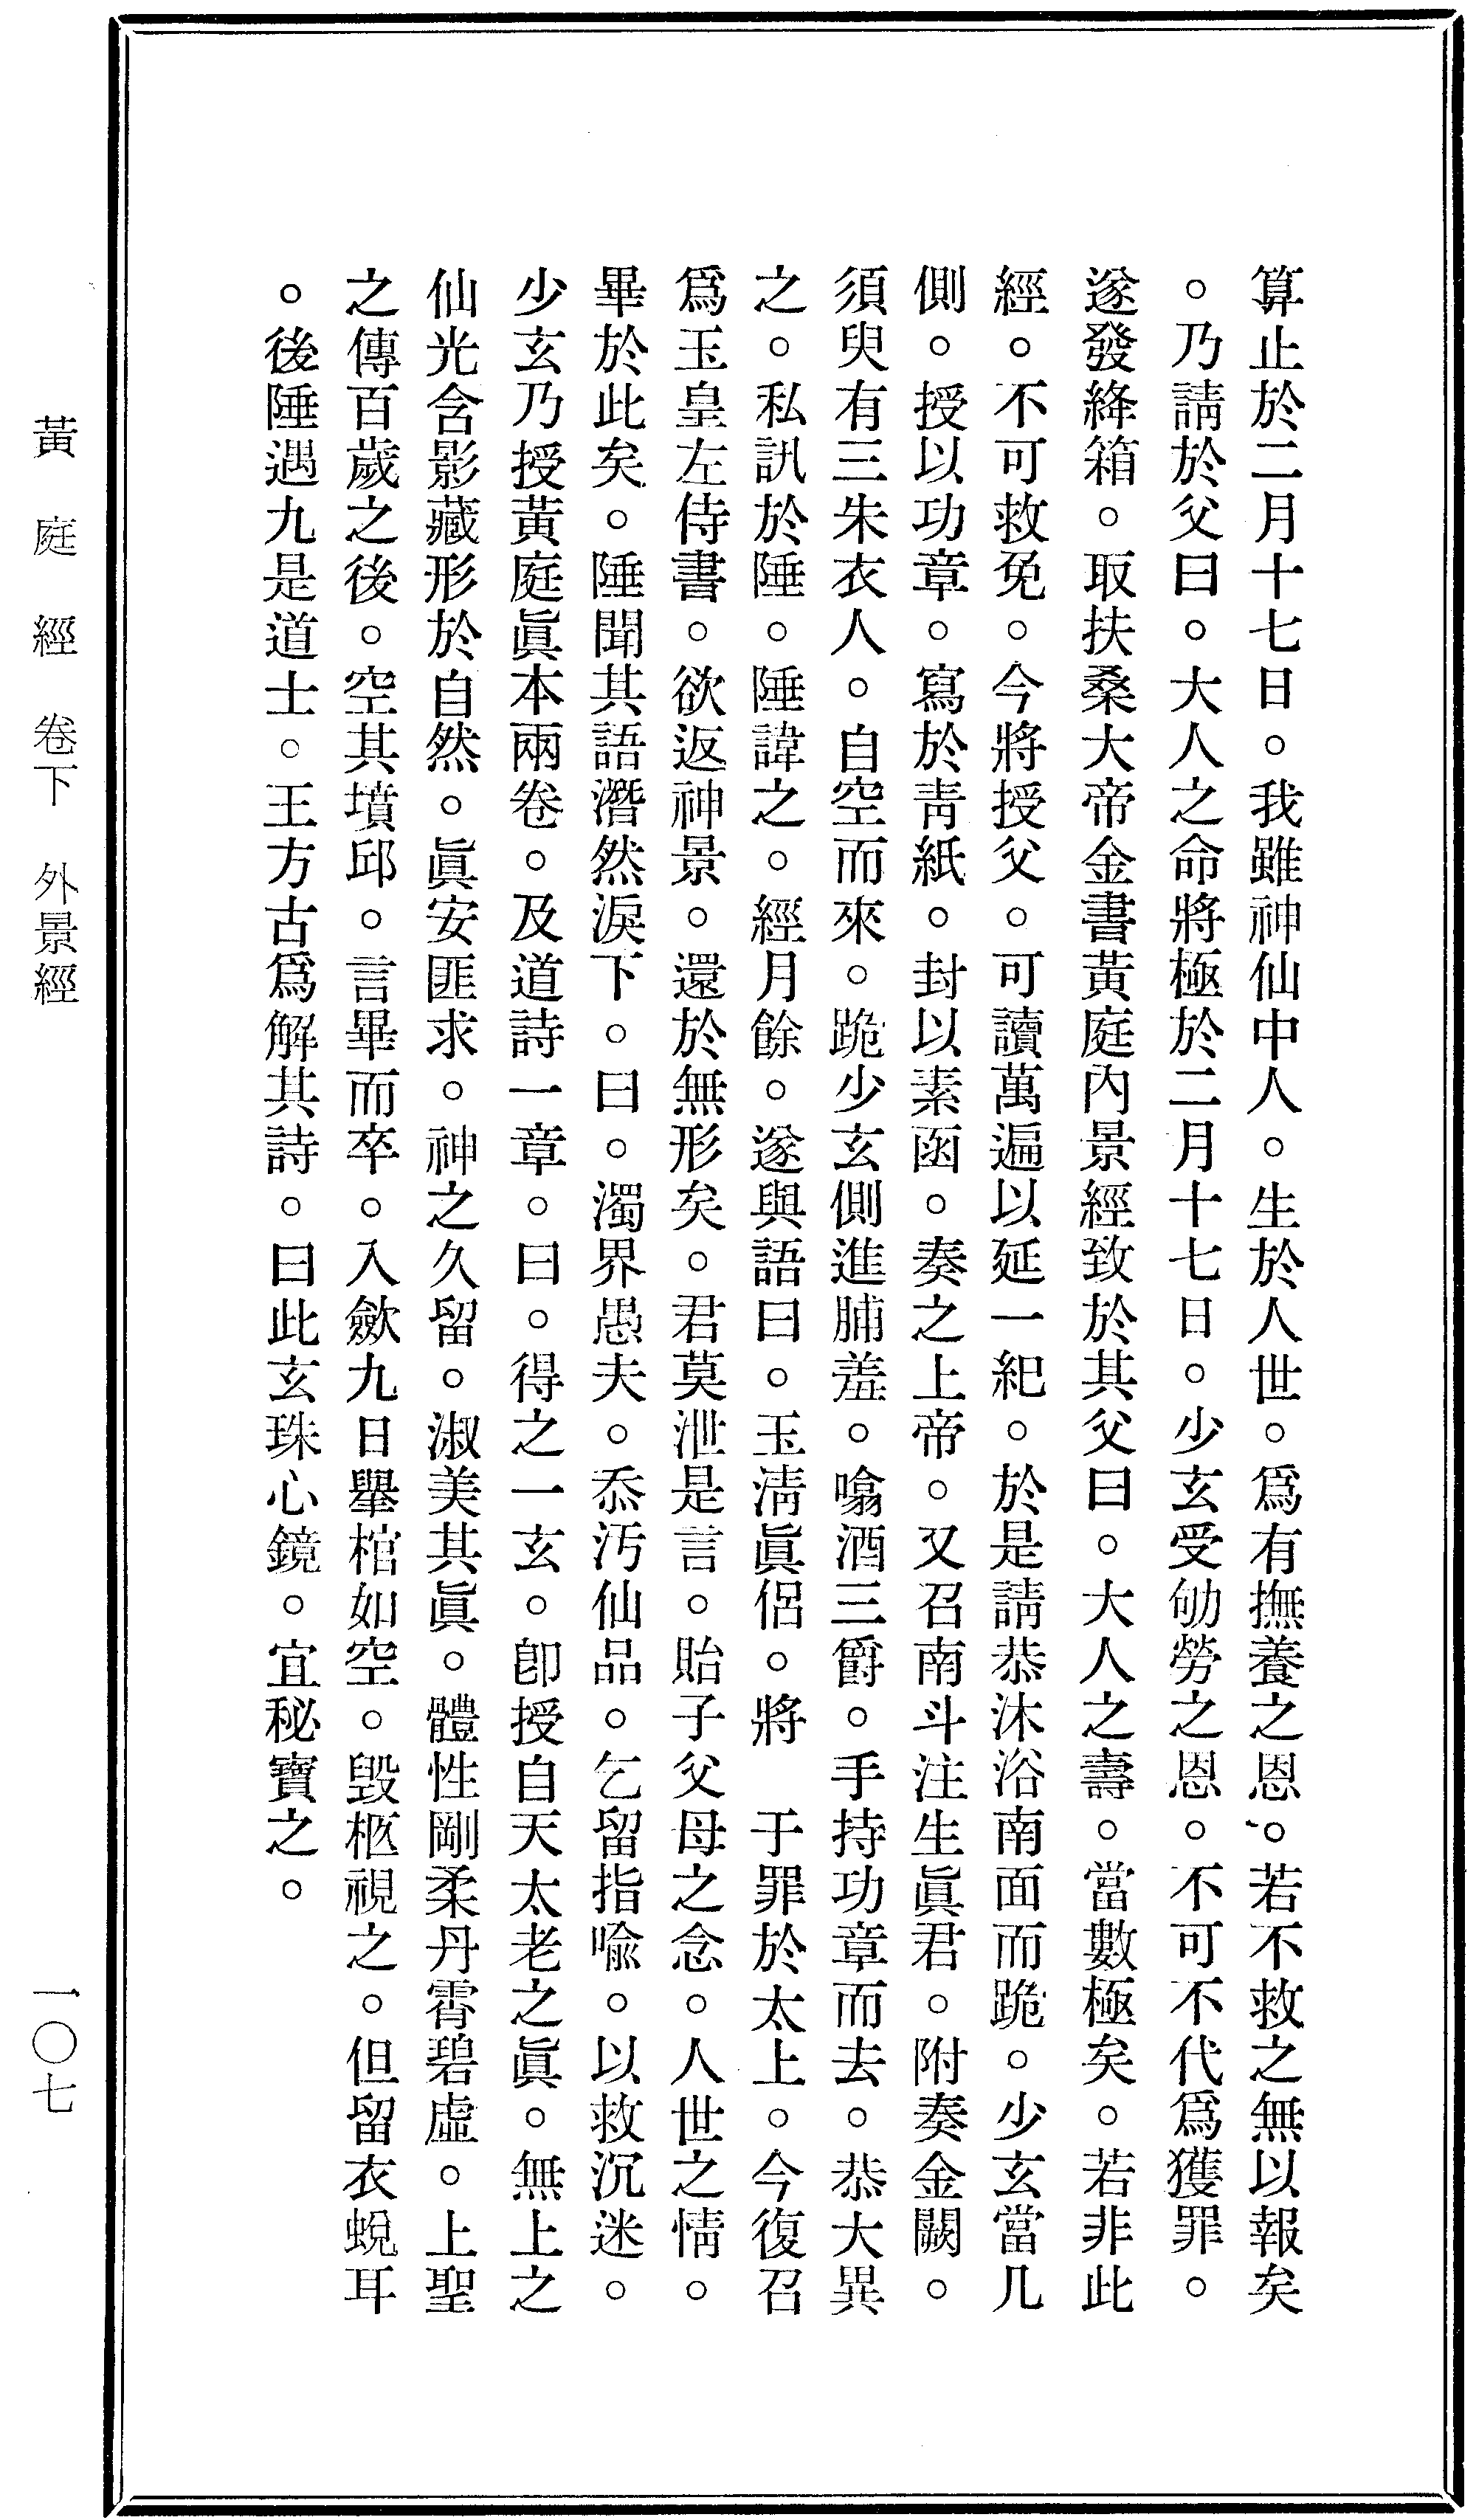 算止於二月十七日。我雖神仙中人。生於人世。爲有撫養之恩。若不救之無以報矣
。乃請於父曰。大人之命將極於二月十七日。少玄受劬勞之恩。不可不代爲獲罪。
遂發絳箱。取扶桑大帝金書黃庭內景經致於其父曰。大人之壽。當數極矣。若非此
經。不可救免。今將授父。可讀萬遍以延一紀。於是請恭沐浴南面而跪。少玄當几
側。授以功章。寫於靑紙。封以素函。奏之上帝。又召南斗注生眞君。附奏金闕。
須臾有三朱衣人。自空而來。跪少玄側進脯羞。噏酒三爵。手持功章而去。恭大異
之。私訊於陲。陲諱之。經月餘。遂與語曰。玉淸眞侶。將　于罪於太上。今復召
爲玉皇左侍書。欲返神景。還於無形矣。君莫泄是言。貽子父母之念。人世之情。
畢於此矣。陲聞其語潛然淚下。曰。濁界愚夫。忝汚仙品。乞留指喩。以救沉迷。
少玄乃授黃庭眞本兩卷。及道詩一章。曰。得之一玄。卽授自天太老之眞。無上之
仙光含影藏形於自然。眞安匪求。神之久留。淑美其眞。體性剛柔丹霄碧虛。上聖
之傳百歲之後。空其墳邱。言畢而卒。入歛九日舉棺如空。毀柩視之。但留衣蛻耳
。後陲遇九是道士。王方古爲解其詩。曰此玄珠心鏡。宜秘寶之。
黃庭經 卷下 外景經 一〇七